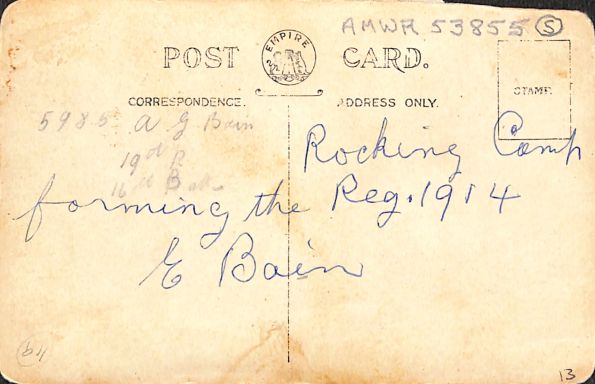 AMWR 53855 S
POST CARD.
EMPIRE
CORRESPONDENCE.
ADDRESS ONLY.
STAMP.
5985 A G Bain
19th R
16th Batt
Rocking Camp
forming the Reg. 1914
E Bain
b4
13